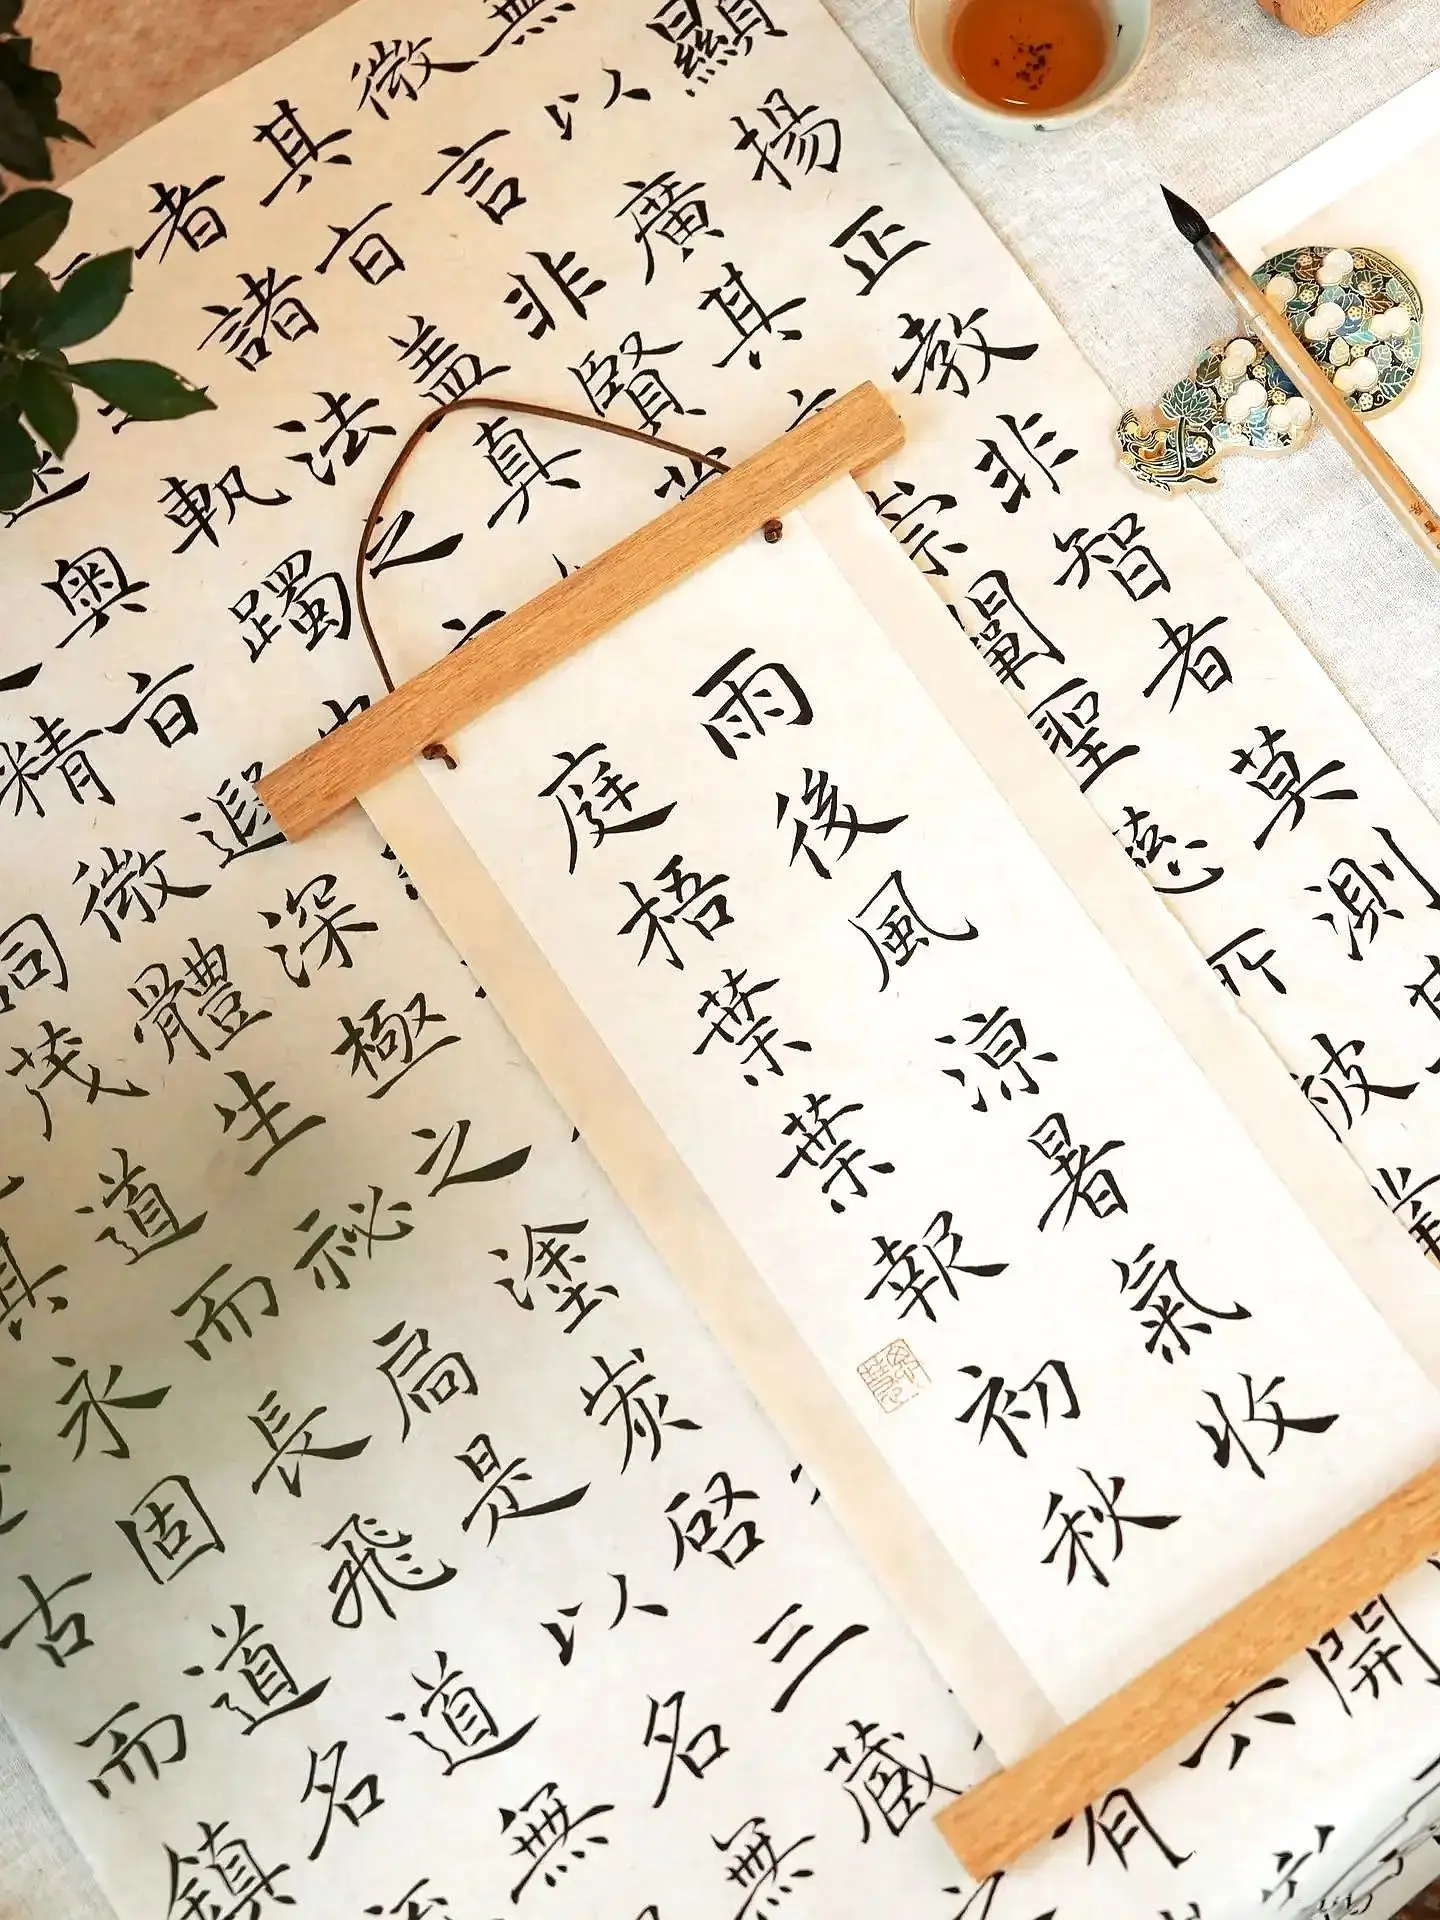 雨後風涼暑氣收
庭梧葉葉報初秋
顯揚正教非智者莫測其
無以廣其崇闡聖慈所被
微言非賢
其旨蓋真
者諸法之
軌躅
奧旨遐深極之塗炭啓三藏
精微體生祕局是以名無
詞茂道而長飛道無
其永固道名
古而鎮
開
六
有